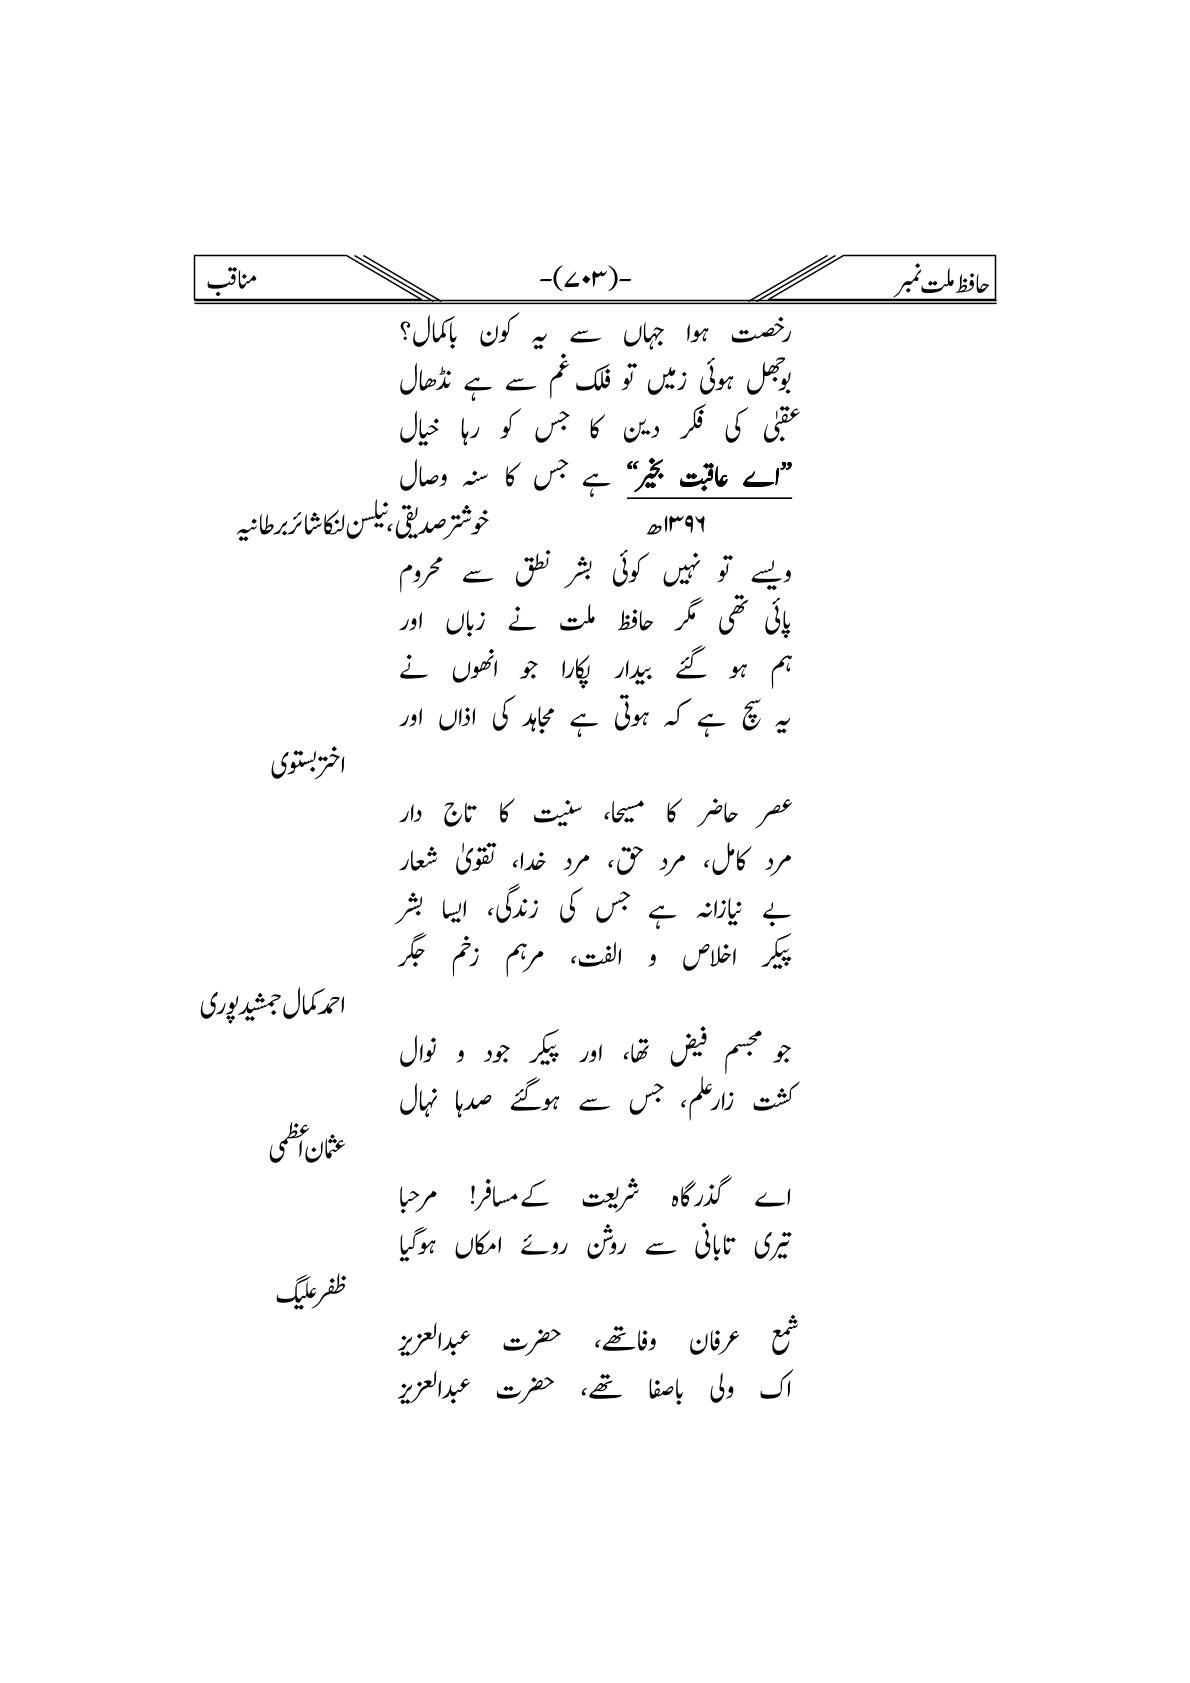 حافظ ملت نمبر -(۷۰۳)- مناقب
رخصت ہوا جہاں سے یہ کون باکمال؟
بوجھل ہوئی زمیں تو فلک غم سے ہے نڈھال
عقبیٰ کی فکر دین کا جس کو رہا خیال
”اے عاقبت بخیر“ ہے جس کا سنہ وصال
۱۳۹۶ھ خوشتر صدیقی، نیلسن لنکا شائر برطانیہ
ویسے تو نہیں کوئی بشر نطق سے محروم
پائی تھی مگر حافظ ملت نے زباں اور
ہم ہو گئے بیدار پکارا جو انھوں نے
یہ سچ ہے کہ ہوتی ہے مجاہد کی اذاں اور
اختر بستوی
عصر حاضر کا مسیحا، سنیت کا تاج دار
مرد کامل، مرد حق، مرد خدا، تقویٰ شعار
بے نیازانہ ہے جس کی زندگی، ایسا بشر
پیکر اخلاص و الفت، مرہم زخم جگر
احمد کمال جمشید پوری
جو مجسم فیض تھا، اور پیکر جود و نوال
کشت زار علم، جس سے ہوگئے صدہا نہال
عثمان اعظمی
اے گذر گاہ شریعت کے مسافر! مرحبا
تیری تابانی سے روشن روئے امکاں ہوگیا
ظفر علیگ
شمع عرفان وفا تھے، حضرت عبدالعزیز
اک ولی باصفا تھے، حضرت عبدالعزیز